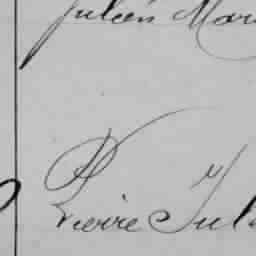 Julien Mar
Pierre Jul